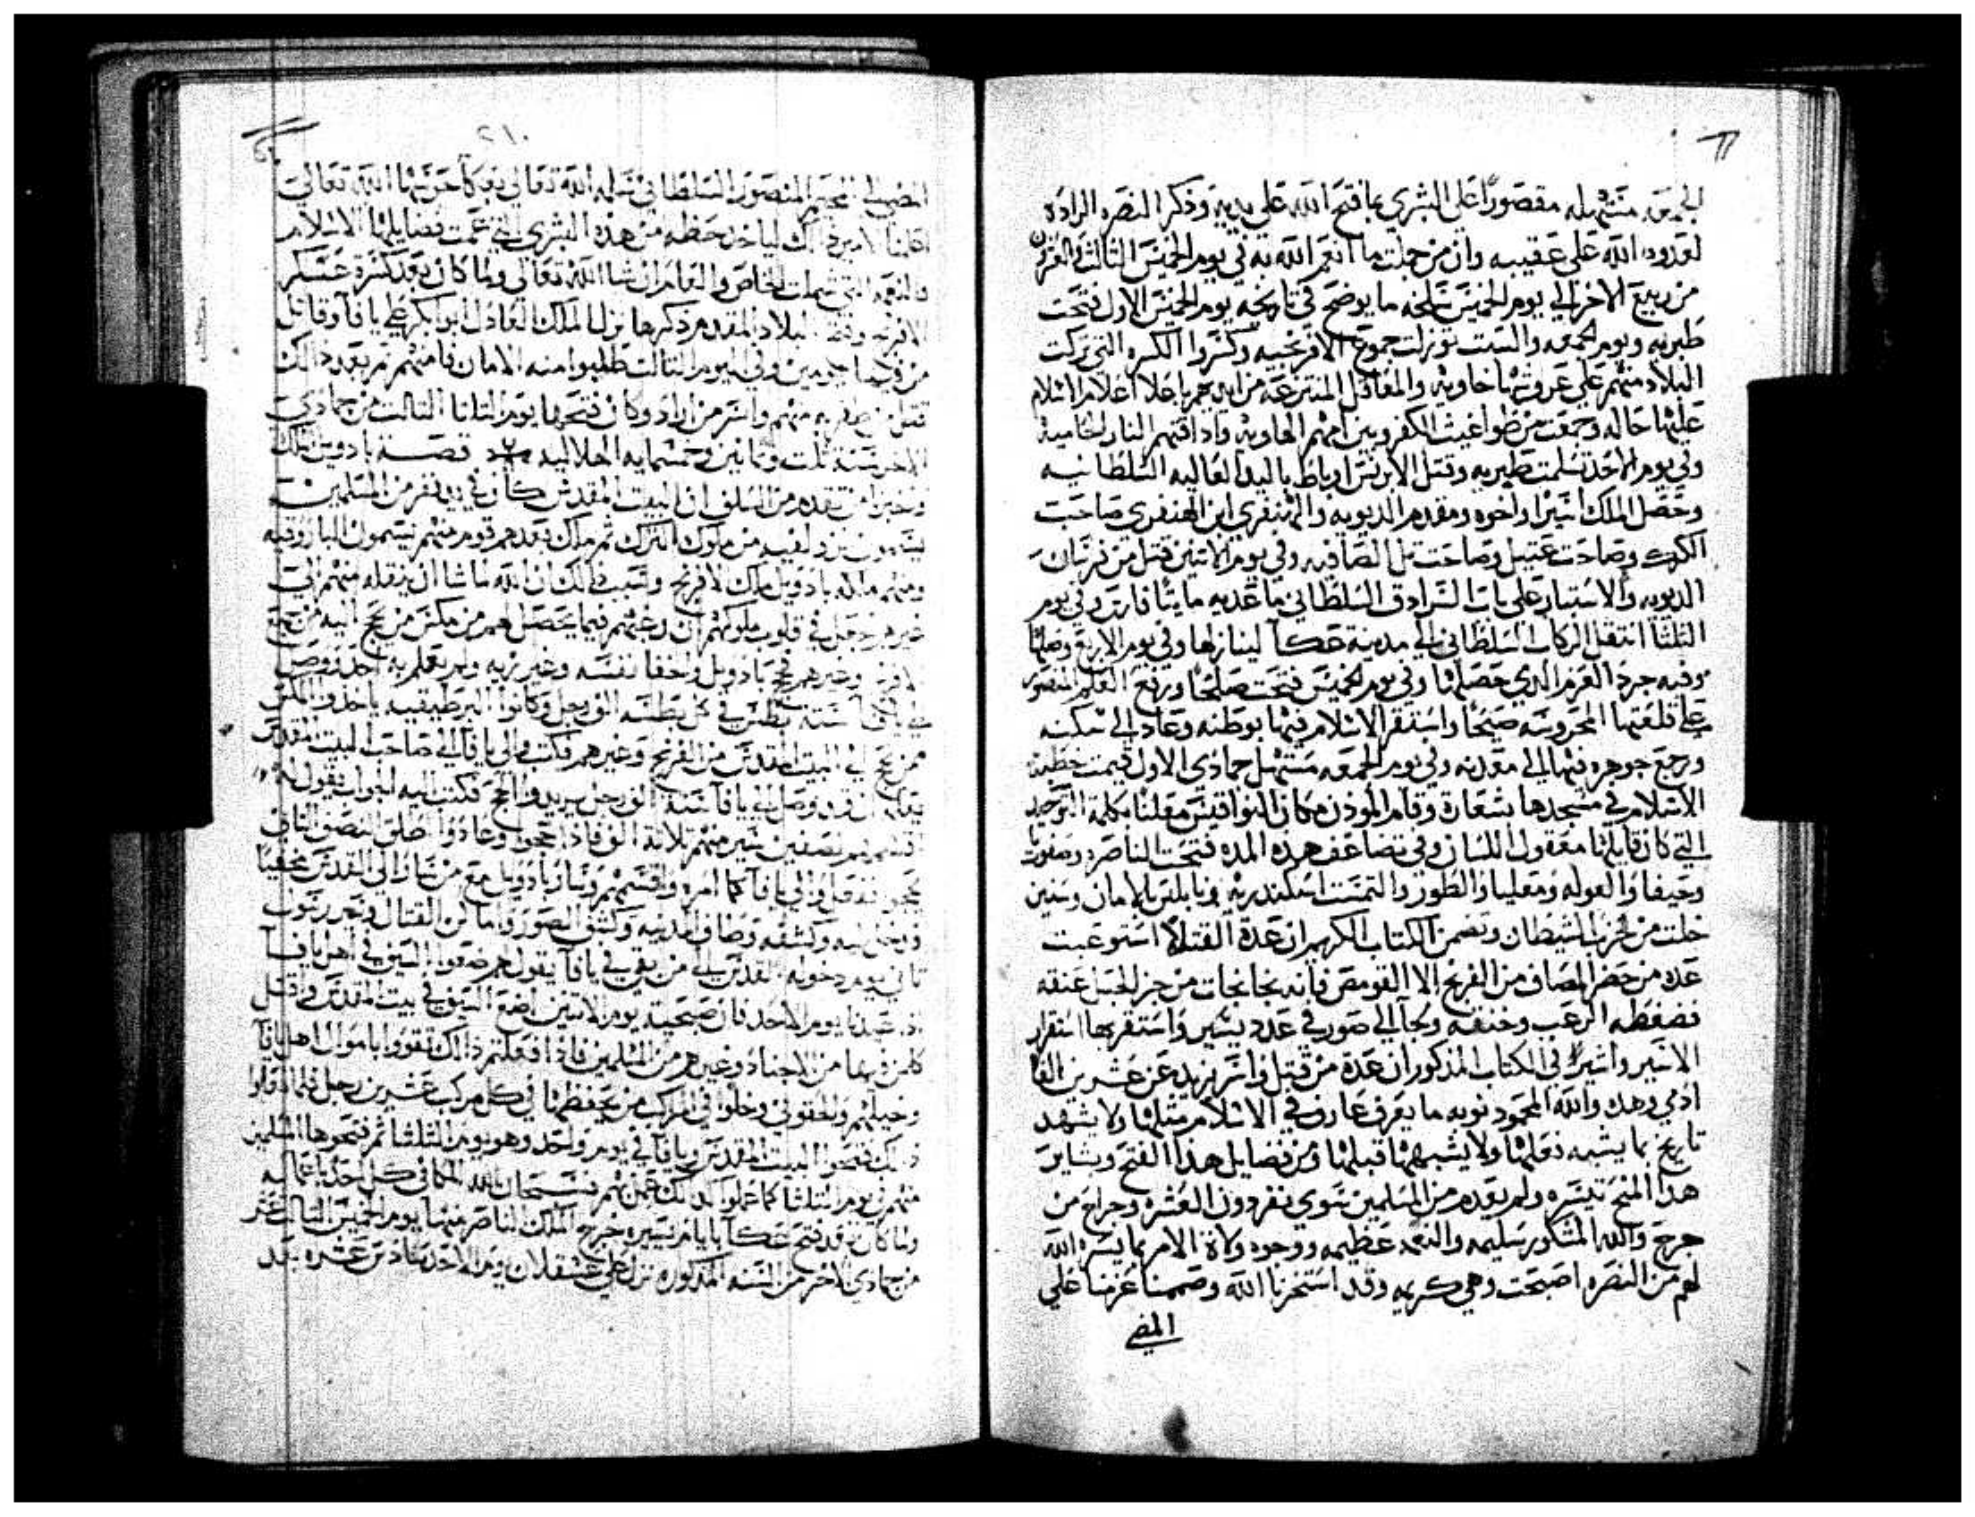 الجمعه مستهله مقصورا على البشرى بما فتح الله على يديه وذكر النصره الراده
لعدوه الله على عقبيه وان من جملت ما انعم الله به في يوم الخميس الثالث والعشرين
من ربيع الاخر الي يوم الخميس سلخه ما يوضح في تاريخه يوم الخميس الاول فتحت
طبريه ويوم الجمعه والسبت نوزلت جموع الافرنجيه وكسروا الكسره التي تركت
البلاد منهم على عروشها خاويه والمعاقل المنتزعه من ايديهم باعلا اعلام الاسلام
عليها حاله وجمعت من طواغيت الكفر وبين امهم الهاويه واذاقتهم النار الحاميه
وفي يوم الاحد تسلمت طبريه وقتل الابرنس ارياط باليد العاليه السلطانيه
وحصل الملك اسيرا واخوه ومقدم الديويه والهنفري ابن الهنفري صاحب
الكرك وصاحب عتبيل وصاحب تل الصافيه وفي يوم الاتنين قتل من فرسان
الديويه والاستبار على باب السرادق السلطاني ما عديه مايتا فارس وفي يوم
الثلثا انتقل الركاب السلطاني الي مدينة عكا لينازلها وفي يوم الاربع وصلها
وفيه جرد العزم الذي حصلها وفي يوم الخميس فتحت صلحا ورفع العلم المنصور
على قلعتها المحروسه صبحا واستقر الاسلام فيها بوطنه وعاد الي سكنه
ورجع جوهره فيها الي معدنه وفي يوم الجمعه مستهل جمادي الاول قيمت خطبة
الاسلام في مسجدها بشعاره وقام الموذن مكان النواقيس معلنا بكلمة التوحيد
التي كان قايلها معقول اللسان وفي تضاعف هذه المده فتحت الناصره وصفوريا
وحيفا والفوله ومعليا والطور والتمست اسكندريه ونابلس بالامان وسنين
خلت من لحزب الشيطان وتضمن الكتاب الكريم ان عدة القتلا استوعبت
عده من حضر المصاف من الفرنج الا القومص فانه نجا نجات من جز الحبل عنقه
فضغطه الرعب وخنقه ولجا الي صور في عدد يسير واستقر بها استقرار
الاسير واشير في الكتاب المذكور ان عدة من قتل واسر يزيد عن عشرين الفا
ادمي وهذه والله المحمود نوبه ما يعرف عارف في الاسلام مثلها ولا يشهد
تاريخ بما يشبه نقلها ولا يشبهها قبلها ومن فضايل هذا الفتح وبشاير
هذا المنح تيسره ولم يعدم من المسلمين سوي نفر دون العشره وجراح من
جرح والله المشكور سليمه والنعمه عظيمه ووجوه ولاة الامر بما يسره الله
لهم من النصره اصبحت وهي كريمه وقد استخرنا الله وصممنا عزمنا على
المضي
٢١٠
المضي الي المخيم المنصور السلطاني نصره الله تعالى بعكا حرسها الله تعالى
لياخد حظه من هذه البشري التي عمت فضايلها الاسلام
والنعمه التي شملت الخاص والعام ان شا الله تعالى ولما كان بعد كسرة عسكر
الافرنج وفتح البلاد المقدم ذكرها نزل الملك العادل ابو بكر على يافا وقاتل
من فيها يومين وفي اليوم الثالث طلبوا منه الامان فامنهم ثم بعد ذالك
قتل من ظفر به منهم واسر من اراد وكان فتحها يوم الثلاثا الثالث من جمادي
الاخر سنة ثلث وثمانين وخمسمايه الهلاليه قصة بادويل الملك
وخبرا من تقدم من السلف ان البيت المقدس كان في يد نفر من المسلمين
من ملوك الترك ثم ملك بعدهم قوم منهم يسمون الباروقيه
ومنهم ملكه بادويل ملك الافرنج وسبب ذلك ان الله ما شا ان ينقله منهم الي
غيرهم جعل في قلوب ملوكهم ان رغبتهم فيما يحصل لهم من مكس من يحج اليه من
الافرنج وغيرهم فحج بادويل واخفا نفسه وغير زيه ولم يعلم به احد ووصل
الي يافا ستة بطس في كل بطسه الف رجل وكانوا البرطيقيه ياخدوا المكس
ممن يحج الي البيت المقدس من الفرنج وغيرهم فكتب والي يافا الي صاحب البيت المقدس
وصل الي يافا ستة الف رجل يريدوا الحج فكتب اليه الجواب يقول له
اقسمهم نصفين سير منهم ثلاثة الف فاذا حجوا وعادوا اطلق النصف الثاني
يحجوا ففعل والي يافا كما امره واقسمهم وسار بادويل مع من سار الي القدس مخفيا
ودخل اليه وكشفه وطاف المدينه وكشف الصور واماكن القتال وحرر
ثاني يوم دخوله القدس الي من بقي في يافا يقول لهم ضعوا السيف في اهل يافا
يوم الاحد فان صبحية يوم الاتنين اضع السيف في بيت المقدس واقتل
كلمن فيها من الاجناد وغيرهم من المسلمين فاذا فعلتم ذالك تقووا باموال اهل يافا
وخيلهم والحقوني وخلوا في المراكب من يحفظها في كل مركب عشرين رجل
فتحوا البيت المقدس ويافا في يوم واحد وهو يوم الثلثا ثم فتحوها المسلمين
منهم في يوم الثلثا كما عملوا كذلك عمل بهم فسبحان الله المكافي كل احد باعماله
ولما كان بعد فتح عكا بايام يسيره خرج الملك الناصر منها يوم الخميس الثالث عشر
من جمادي الاخر من السنه المذكوره نزل على عسقلان يوم الاحد سادس عشره بعد